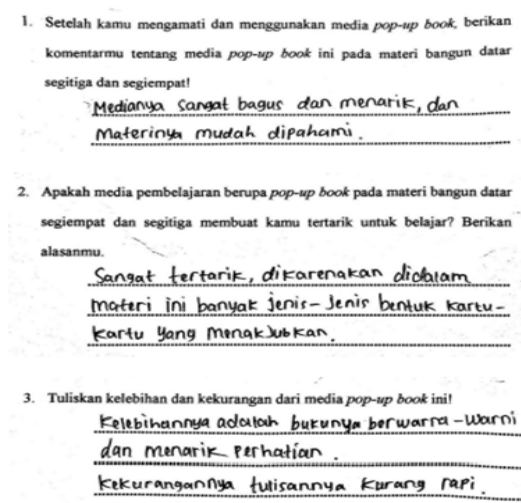 1. Setelah kamu mengamati dan menggunakan media pop-up book, berikan
komentarmu tentang media pop-up book ini pada materi bangun datar
segitiga dan segiempat!
Medianya sangat bagus dan menarik, dan
Materinya mudah dipahami.
2. Apakah media pembelajaran berupa pop-up book pada materi bangun datar
segiempat dan segitiga membuat kamu tertarik untuk belajar? Berikan
alasanmu.
Sangat tertarik, dikarenakan didalam
materi ini banyak jenis-jenis bentuk kartu-
kartu yang menakjubkan.
3. Tuliskan kelebihan dan kekurangan dari media pop-up book ini!
Kelebihannya adalah bukunya berwarna-warni
dan menarik perhatian.
kekurangannya tulisannya kurang rapi.